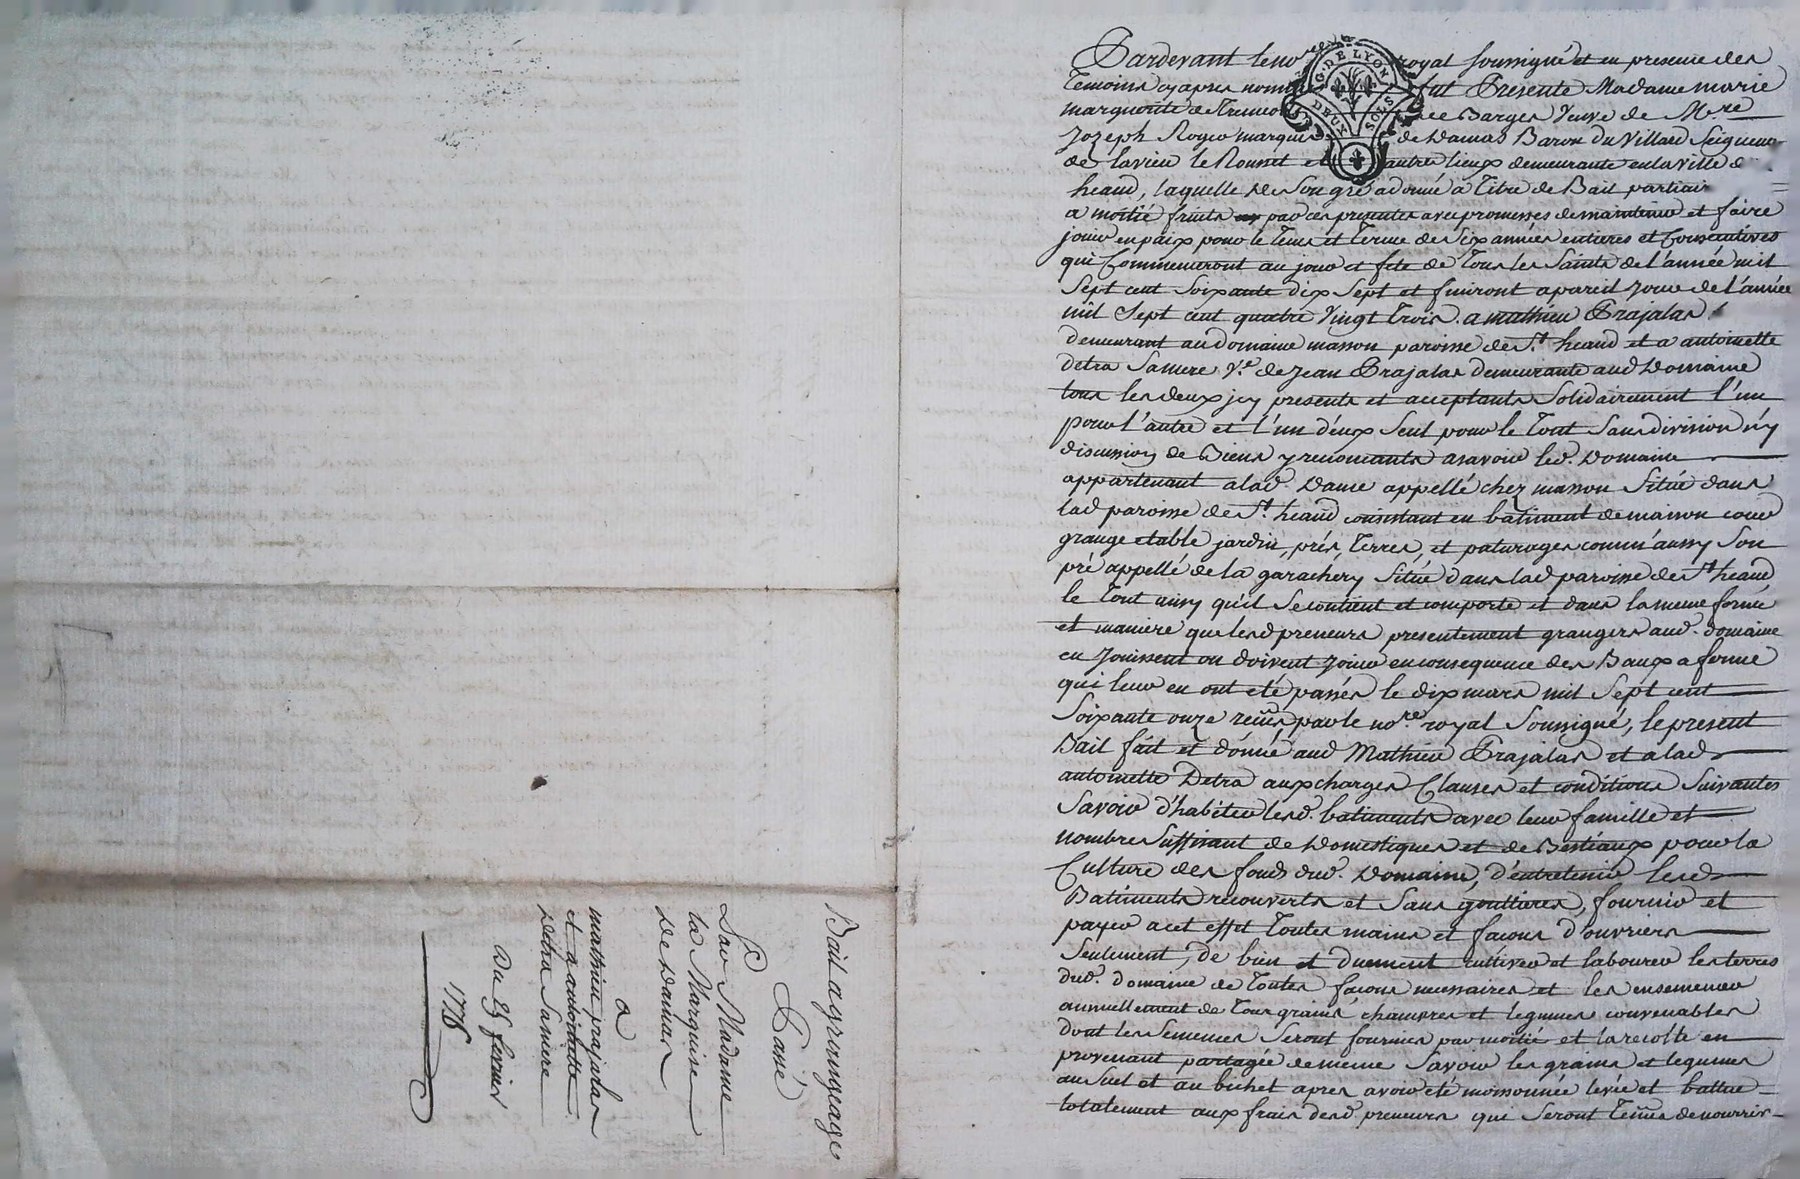 Bail a grangeage
Passé
Par Madame
la Marquise
de Damas
a
mathieu prajalas
et a antoinette
detra Sa mere
Du 25 fevrier
1776
G. DE LYON
DEUX SOLS
Pardevant le no royal soussigné et en presence des
Temoins cy apres nom fut Presente Madame marie
marguerite de Barges Veuve de M.re
Jozeph Roger marquis de Damas Baron du Villard Seigneur
de lavieu le Rousset et autres lieux demeurante en la ville
heand, laquelle de Son gré a donné a titre de Bail partiair
a moitié fruits par ces presentes avec promesses de maintenir et faire
jouir en paix pour le tems et terme de Six années entieres et Consecutives
qui Commenceront au jour et fete de Tous les Saints de l'année mil
Sept cent Soixante dix Sept et finiront a pareil Jour de l'année
mil Sept cent quatre Vingt trois. a mathieu Prajalas
demeurant au domaine masson paroisse de S.t heand et a antoinette
detra Sa mere V.e de Jean Prajalas demeurante aud Domaine
tous les deux jcy presents et acceptants Solidairement l'un
pour l'autre et l'un d'eux Seul pour le Tout Sans division n'y
discussion de Biens y renonçants a savoir led. Domaine
appartenant a lad. Dame appellé chez masson Situé dans
lad paroisse de S.t heand consistant en batiment de maison cour
grange etable jardin, prés, terres, et paturages comm'aussy Son
pré appellé de la garachery Situé dans lad paroisse de S.t heand
le Tout ainsy qu'il Se contient et comporte et dans la meme forme
et maniere que lesd preneurs presentement grangers aud. domaine
en Jouissent ou doivent Jouir en consequence des Baux a ferme
qui leur en ont eté passés le dix mars mil Sept cent
Soixante onze reçus par le no.re royal Soussigné, le present
Bail fait et donné aud Mathieu Prajalas et a lad
antoinette Detra aux charges Clauses et conditions Suivantes
Savoir d'habiter lesd. batiments avec leur famille et
nombre Suffisant de Domestiques et de Bestiaux pour la
Culture des fonds dud. Domaine, d'entretenir lesd
Batiments recouverts et Sans gouttieres, fournir et
payer a cet effet Toutes mains et façons d'ouvriers
Seulement, de bien et duement cultiver et labourer les terres
dud. domaine de Toutes façons necessaires et les ensemencer
annuellement de Tous grains chanvres et legumes convenables
dont les Semences Seront fournies par moitié et la recolte en
provenant partagée de meme Savoir les grains et legumes
au Suel et au bichet apres avoir eté moissonnée levée et battue
totalement aux frais desd. preneurs qui Seront Tenus de nourrir